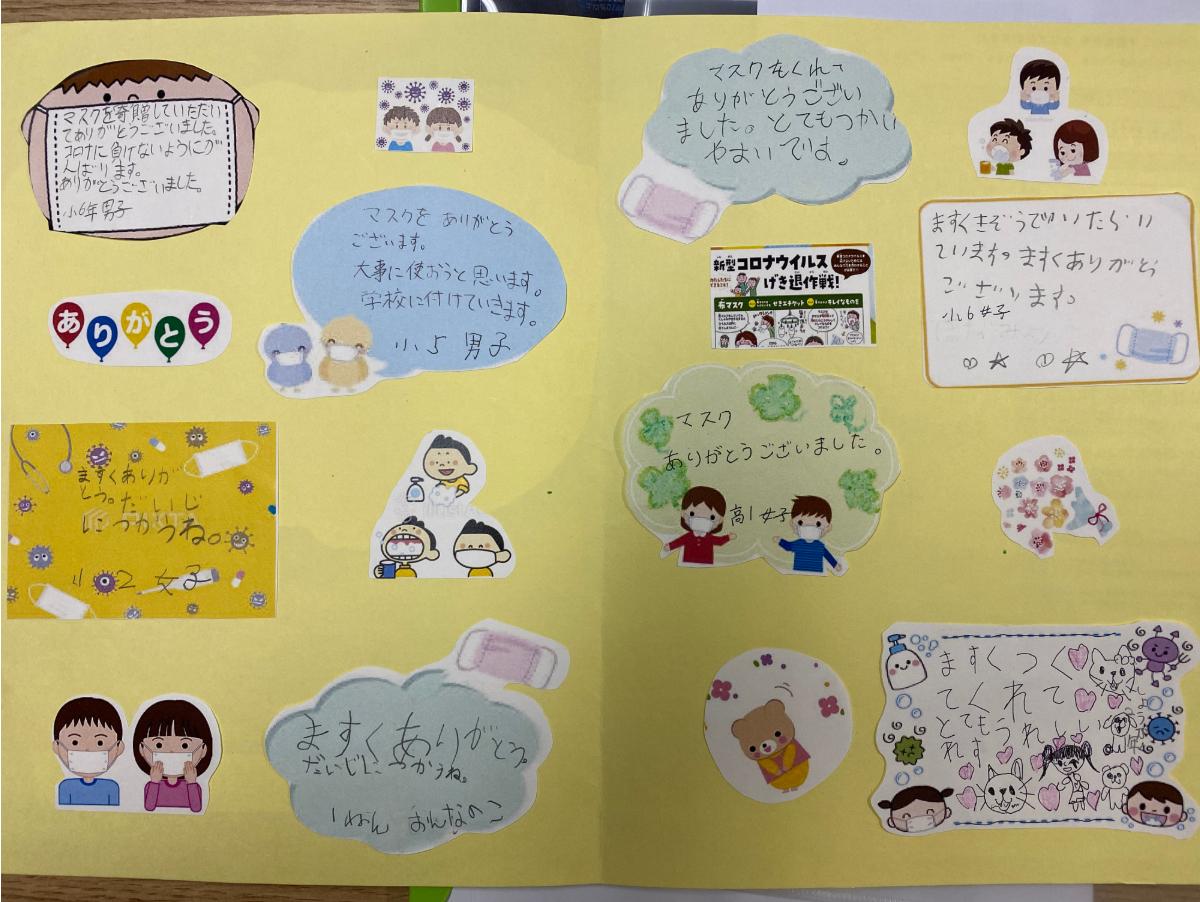 マスクを寄贈していただい
てありがとうございました。
コロナに負けないようにが
んばります。
ありがとうございました。
小6年 男子
マスクを ありがとう
ございます。
大事に使おうと思います。
学校に付けていきます。
小5 男子
ありがとう
ますくありが
とう。だいじ
につかうね。
小2 女子
ますく ありがとう。
だいじに つかうね。
1ねん おんなのこ
マスクをくれて
ありがとうござい
ました。とてもつかい
やすいです。
ますくきぞうでいただい
ています。ますくありがとう
ございます。
小6女子
新型コロナウイルス
げき退作戦!
布マスク
せきエチケット
キレイなものを
マスク
ありがとうございました。
高1女子
ますくつく
てくれて
とてもうれしい
れす